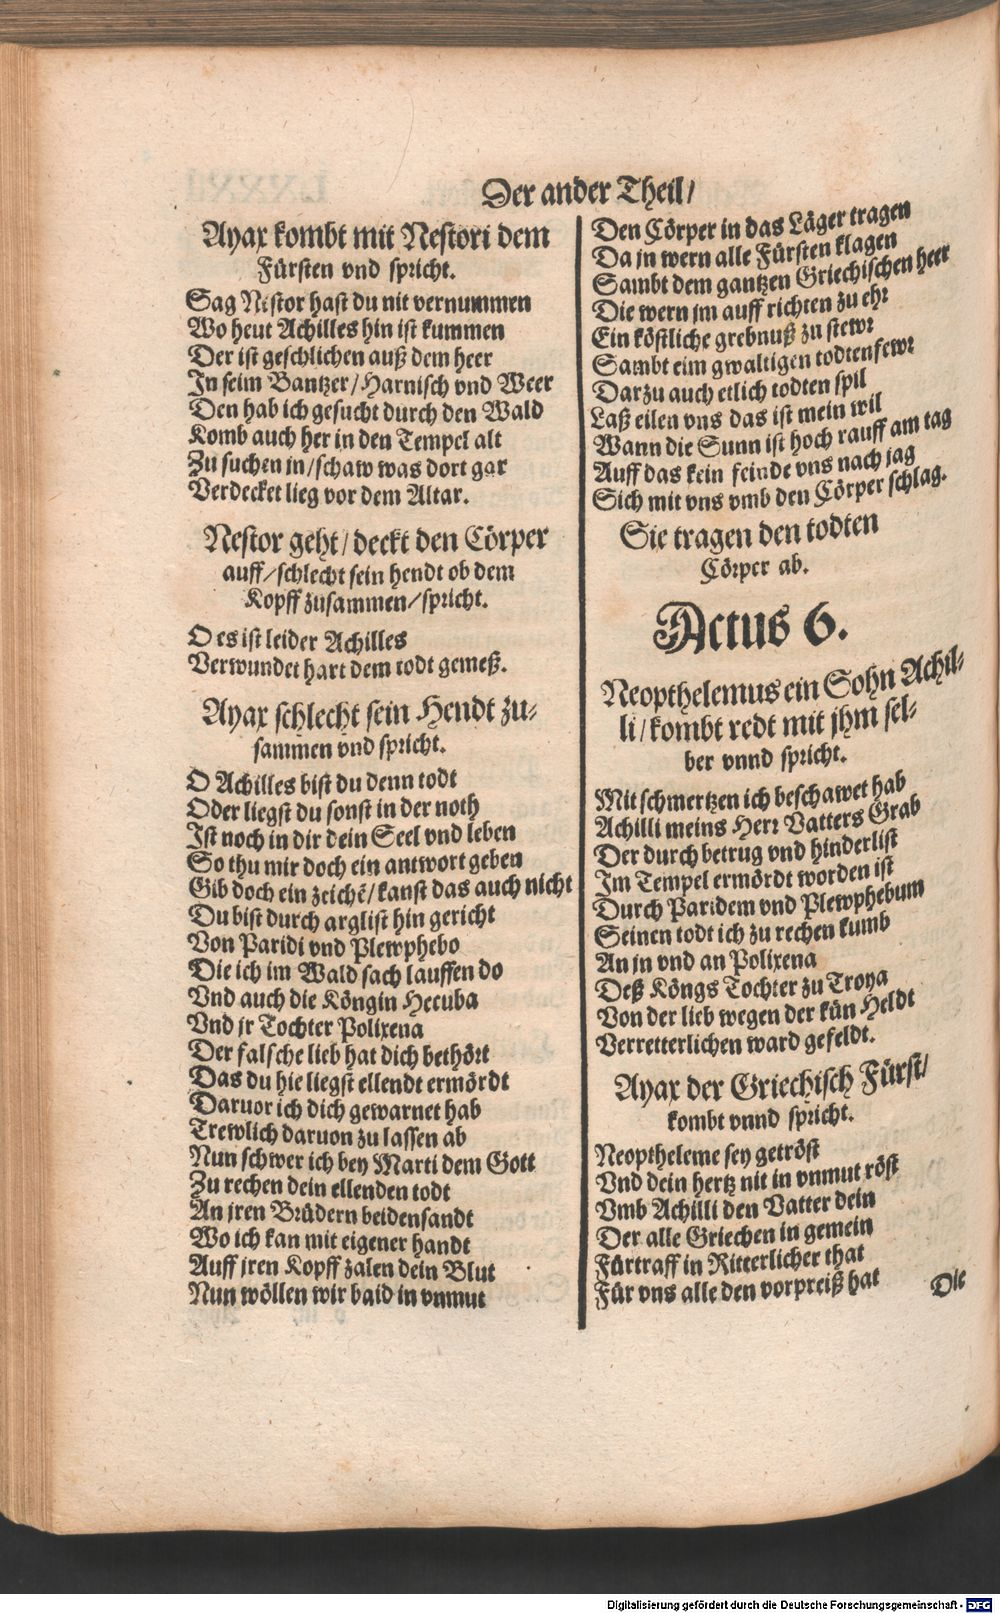 Der ander Theil/
Ayax kombt mit Nestori dem
Fürsten vnd spricht.
Sag Nestor hast du nit vernummen
Wo heut Achilles hin ist kummen
Der ist geschlichen auß dem heer
In seim Bantzer/Harnisch vnd Weer
Den hab ich gesucht durch den Wald
Komb auch her in den Tempel alt
Zu suchen in/schaw was dort gar
Verdecket lieg vor dem Altar.
Nestor geht/deckt den Cörper
auff/schlecht sein hendt ob dem
Kopff zusammen/spricht.
O es ist leider Achilles
Verwundet hart dem todt gemeß.
Ayax schlecht sein Hendt zu-
sammen vnd spricht.
O Achilles bist du denn todt
Oder liegst du sonst in der noth
Ist noch in dir dein Seel vnd leben
So thu mir doch ein antwort geben
Gib doch ein zeichẽ/kanst das auch nicht
Du bist durch arglist hin gericht
Von Paridi vnd Plewphebo
Die ich im Wald sach lauffen do
Vnd auch die Köngin Hecuba
Vnd jr Tochter Polixena
Der falsche lieb hat dich bethört
Das du hie liegst ellendt ermördt
Daruor ich dich gewarnet hab
Trewlich daruon zu lassen ab
Nun schwer ich bey Marti dem Gott
Zu rechen dein ellenden todt
An jren Brüdern beidensandt
Wo ich kan mit eigener handt
Auff jren Kopff zalen dein Blut
Nun wöllen wir baid in vnmut
Den Cörper in das Läger tragen
Da jn wern alle Fürsten klagen
Sambt dem gantzen Griechischen heer
Die wern jm auff richten zu ehr
Ein köstliche grebnuß zu stewr
Sambt eim gwaltigen todtenfewr
Darzu auch etlich todten spil
Laß eilen vns das ist mein wil
Wann die Sunn ist hoch rauff am tag
Auff das kein feinde vns nach jag
Sich mit vns vmb den Cörper schlag.
Sie tragen den todten
Cörper ab.
Actus 6.
Neopthelemus ein Sohn Achil-
li/kombt redt mit jhm sel-
ber vnnd spricht.
Mit schmertzen ich beschawet hab
Achilli meins Herr Vatters Grab
Der durch betrug vnd hinderlist
Im Tempel ermördt worden ist
Durch Paridem vnd Plewphebum
Seinen todt ich zu rechen kumb
An jn vnd an Polixena
Deß Köngs Tochter zu Troya
Von der lieb wegen der kün Heldt
Verretterlichen ward gefeldt.
Ayax der Griechisch Fürst/
kombt vnnd spricht.
Neoptheleme sey getröst
Vnd dein hertz nit in vnmut röst
Vmb Achilli den Vatter dein
Der alle Griechen in gemein
Fürtraff in Ritterlicher that
Für vns alle den vorpreiß hat
Die
Digitalisierung gefördert durch die Deutsche Forschungsgemeinschaft - DFG